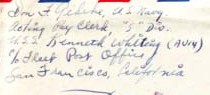 Tom F. , U.S. Navy
Acting Pay Clerk, "S" Div.
U.S.S. Kenneth Whiting (AV14)
% Fleet Post Office
San Francisco, California